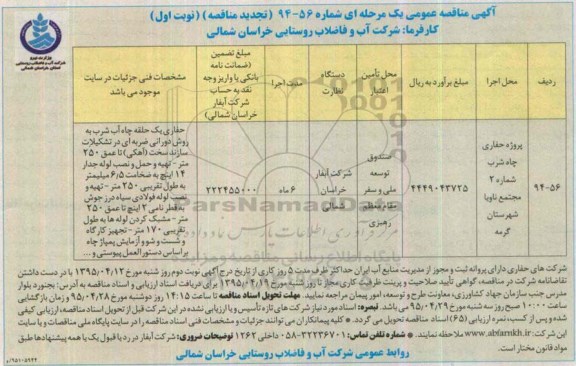 آگهی مناقصه عمومی یک مرحله ای شماره ۵۶-۹۴ (تجدید مناقصه) (نوبت اول)
کارفرما: شرکت آب و فاضلاب روستایی خراسان شمالی
وزارت نیرو
شرکت آب و فاضلاب روستایی
استان خراسان شمالی
ردیف
محل اجرا
مبلغ برآورد به ریال
محل تأمین اعتبار
دستگاه نظارت
مدت اجرا
مبلغ تضمین
(ضمانت نامه
بانکی یا واریز وجه
نقد به حساب
شرکت آبفار
خراسان شمالی)
مشخصات فنی جزئیات در سایت
موجود می باشد
۵۶-۹۴
پروژه حفاری
چاه شرب
شماره ۲
مجتمع ناویا
شهرستان
گرمه
۴۴۴۹۰۴۳۷۲۵
صندوق
توسعه
ملی و سفر
مقام معظم
رهبری
شرکت آبفار
خراسان
شمالی
۶ ماه
۲۲۲۴۵۵۰۰۰
حفاری یک حلقه چاه آب شرب به
روش دورانی ضربه ای در تشکیلات
سازند سخت (آهکی) تا عمق ۲۵۰
متر - تهیه و حمل و نصب لوله جدار
۱۴ اینچ به ضخامت ۶/۵ میلیمتر
به طول تقریبی ۲۵۰ متر - تهیه و
نصب لوله فولادی سیاه درز جوش
به قطر نامی ۲ اینچ تا عمق ۲۵۰
متر - مشبک کردن لوله ها به طول
تقریبی ۱۷۰ متر - تجهیز کارگاه
و شست و شو و آزمایش پمپاژ چاه
براساس دستورالعمل پیوستی و ...
شرکت های حفاری دارای پروانه ثبت و مجوز از مدیریت منابع آب ایران حداکثر ظرف مدت ۵ روز کاری از تاریخ درج آگهی نوبت دوم روز شنبه مورخ ۱۳۹۵/۰۴/۱۲ با در دست داشتن
تقاضانامه شرکت در مناقصه، گواهی تأیید صلاحیت و پرینت ظرفیت کاری مجاز تا روز شنبه مورخ ۱۳۹۵/۰۴/۱۹ برای دریافت اسناد ارزیابی و اسناد مناقصه به آدرس: بجنورد بلوار
مدرس جنب سازمان جهاد کشاورزی، معاونت طرح و توسعه، امور پیمان مراجعه نمایند. مهلت تحویل اسناد مناقصه تا ساعت ۱۴:۱۵ روز دوشنبه مورخ ۹۵/۰۴/۲۸ و زمان بازگشایی
ساعت ۱۰:۰۰ صبح روز سه شنبه مورخ ۹۵/۰۴/۲۹ می باشد. تبصره: اسناد مورد نیاز شرکت های تازه تأسیس و یا ارزیابی نشده در این شرکت قبل از تحویل اسناد مناقصه، ارزیابی کیفی
شده و پس از کسب نمره ارزیابی (۶۵) اسناد مناقصه تحویل می گردد. * کلیه پیمانکاران می توانند جزئیات و مشخصات فنی اسناد مناقصه را در سایت پایگاه ملی مناقصات و یا سایت
این شرکت: www.abfarnkh.ir ملاحظه نمایند. * شماره تلفن تماس: ۳۲۲۳۶۷۰۱-۰۵۸ داخلی ۱۲۶۲ توضیحات ضروری: شرکت آبفار در رد یا قبول یک یا همه پیشنهادها طبق
مواد قانون مختار است.
روابط عمومی شرکت آب و فاضلاب روستایی خراسان شمالی
۹۵۱۰۵۹۴۴/م